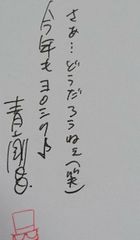 さあ…どうだろうねぇ(笑)
今年もヨロシク♪
青